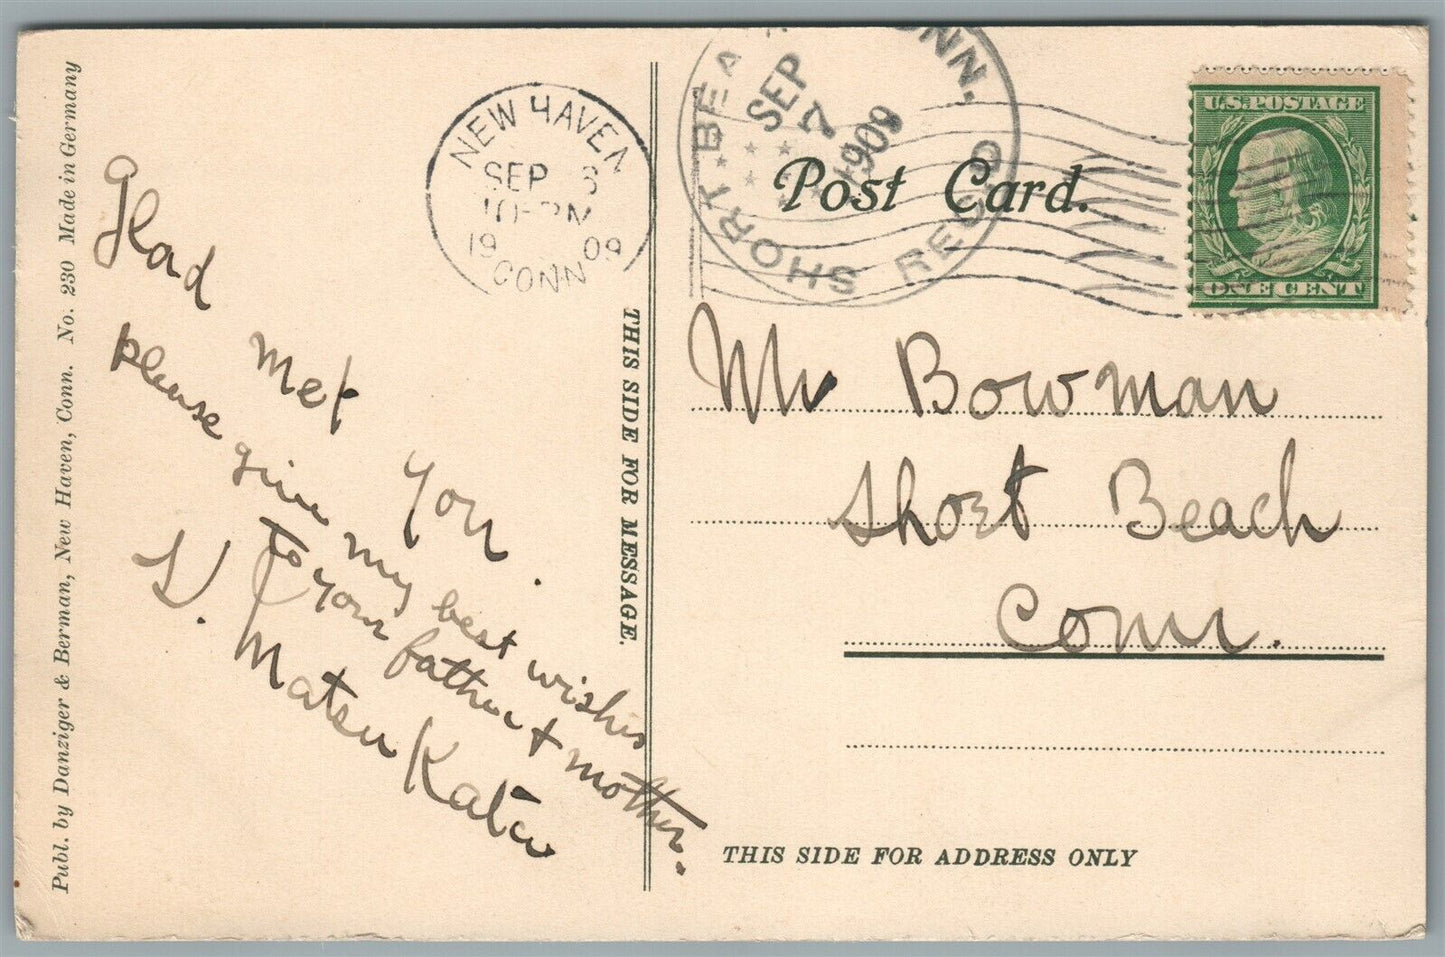 Publ. by Danziger & Berman, New Haven, Conn. No. 230 Made in Germany
Glad
met
you.
please give my best wishes
to your father & mother.
Matsu Kata
THIS SIDE FOR MESSAGE.
NEW HAVEN
SEP 6
1909
CONN
SHORT BEA CONN.
SEP
7
1909
REC'D
Post Card.
U.S. POSTAGE
ONE CENT
Mr Bowman
Short Beach
Conn.
THIS SIDE FOR ADDRESS ONLY